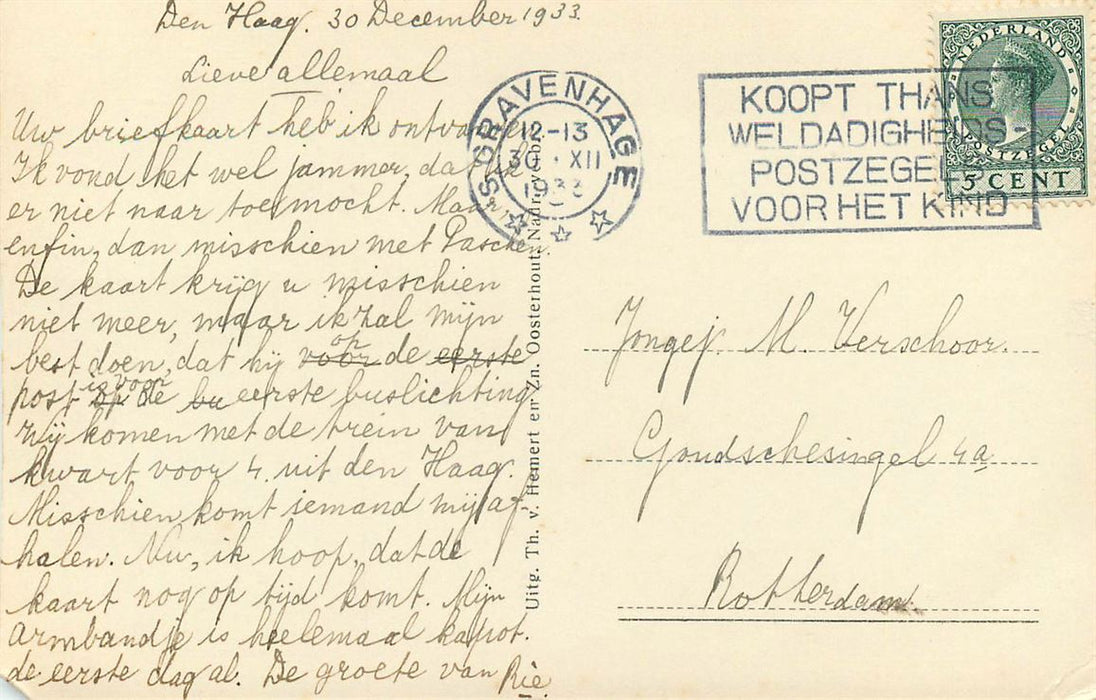 Den Haag. 30 December 1933.
Lieve allemaal
Uw briefkaart heb ik ontvangen
Ik vond het wel jammer, dat ik
er niet naar toe mocht. Maar,
enfin, dan misschien met Paschen.
De kaart krijg u misschien
niet meer, maar ik zal mijn
best doen, dat hij voor op de eerste
post op is voor de bu eerste buslichting
Wij komen met de trein van
kwart voor 4. uit den Haag.
Misschien komt iemand mij af-
halen. Nu, ik hoop, dat de
kaart nog op tijd komt. Mijn
armbandje is heelemaal kapot.
de eerste dag al. De groete van Rie
Uitg. Th. v. Hemert en Zn. Oosterhout, Nadruk verb.
'S GRAVENHAGE
12-13
30 · XII
1933
KOOPT THANS
WELDADIGHEIDS-
POSTZEGELS
VOOR HET KIND
NEDERLAND
POSTZEGEL
5 CENT
Jongej. M. Verschoor.
Goudschesingel 4a
Rotterdam.